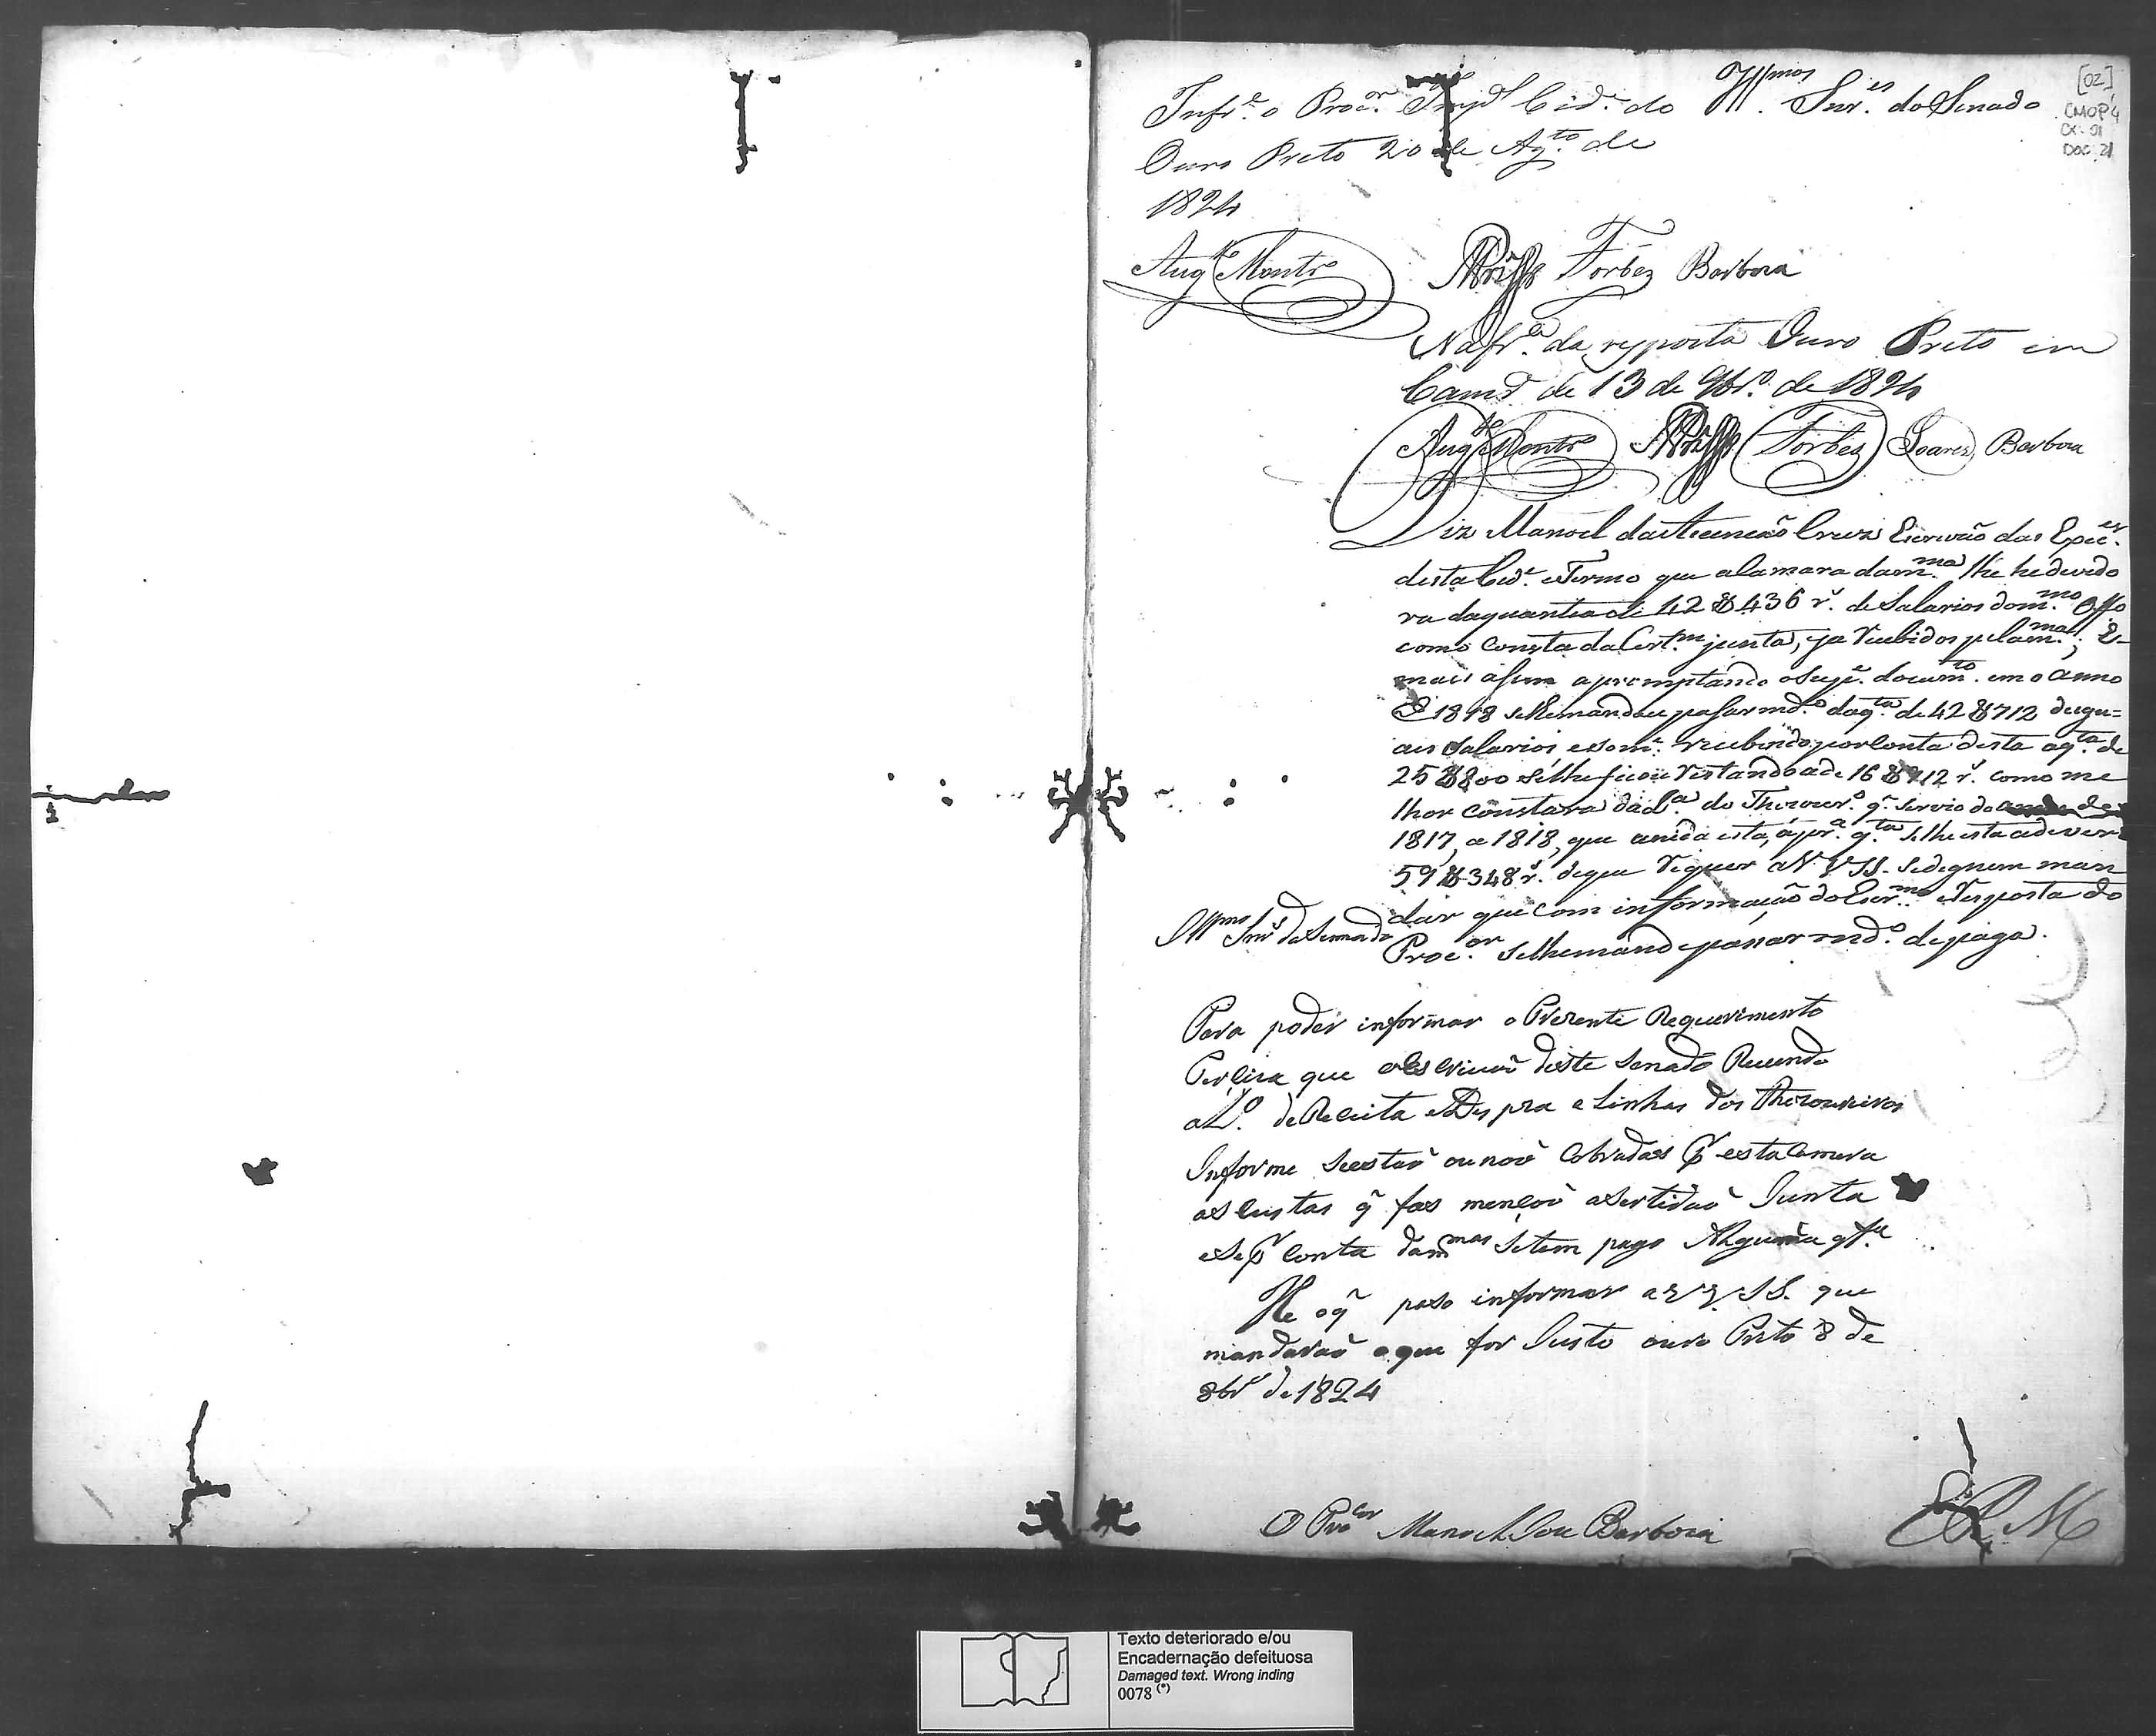 Infr.e o Proc.or Imp.l Cid.e do
Ouro Preto 20 de Ag.to de
1824
Aug.to Montr.o
Forbes Barboza
Ill.mos Snr.es do Senado
[02]
CMOP
CX. 91
DOC. 21
Na fr.a da resposta Ouro Preto em
Cam.ra de 13 de 9br.o de 1824
Aug.to Montr.o Forbes Soares Barboza
Diz Manoel da Acenção Cruz Escrivão das Exec.es
desta Cid.e e Termo que a Camara da m.ma lhe he devedo
ra da quantia de 42$436 r.s de Salarios do m.mo Off.o
como consta da Cert.m junta, ja recebidos pela m.ma; E
mais asim apromptando o Sup.e docum.to em o anno
D 1818 se lhe mandou pasar md.o da q.ta de 42$712 de igu=
aes Salarios, e som.e recebendo por Conta desta a q.ta de
25$800 se lhe ficou restando a de 16$912 r.s como me
lhor constara da L.a do Thezour.o q.e servio do
1817, a 1818, que unida esta, á pr.a q.ta se lhe esta a dever
59$348 r.s de que requer a V V SS. se dignem man
dar que com informação do Escr.m e resposta do
Proc.or se lhe mande passar md.o de paga.
Ill.mos Snr.s do Senado
Para poder informar o Prezente Requerimento
Perciza que o Escrivaõ deste Senado Revendo
o L.o de Receita e Despza e Linhas dos Thezoureiros
Informe Se estaõ ou naõ Cobradas p.r esta Camera
as Custas q̃ fas mençaõ a Sertidaõ Junta
e Se p.r Conta dam.mas Se tem pago Alguma q.tia
He o q̃ poso informar a V V SS. que
mandaraõ o que for Justo ouro Preto 8 de
8br.o de 1824
O Pro.cor Manoel Jose Barboza
E R M
Texto deteriorado e/ou
Encadernação defeituosa
Damaged text. Wrong inding
0078 (*)